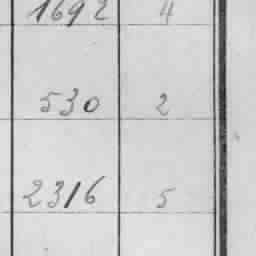 1692 4
530 2
2316 5